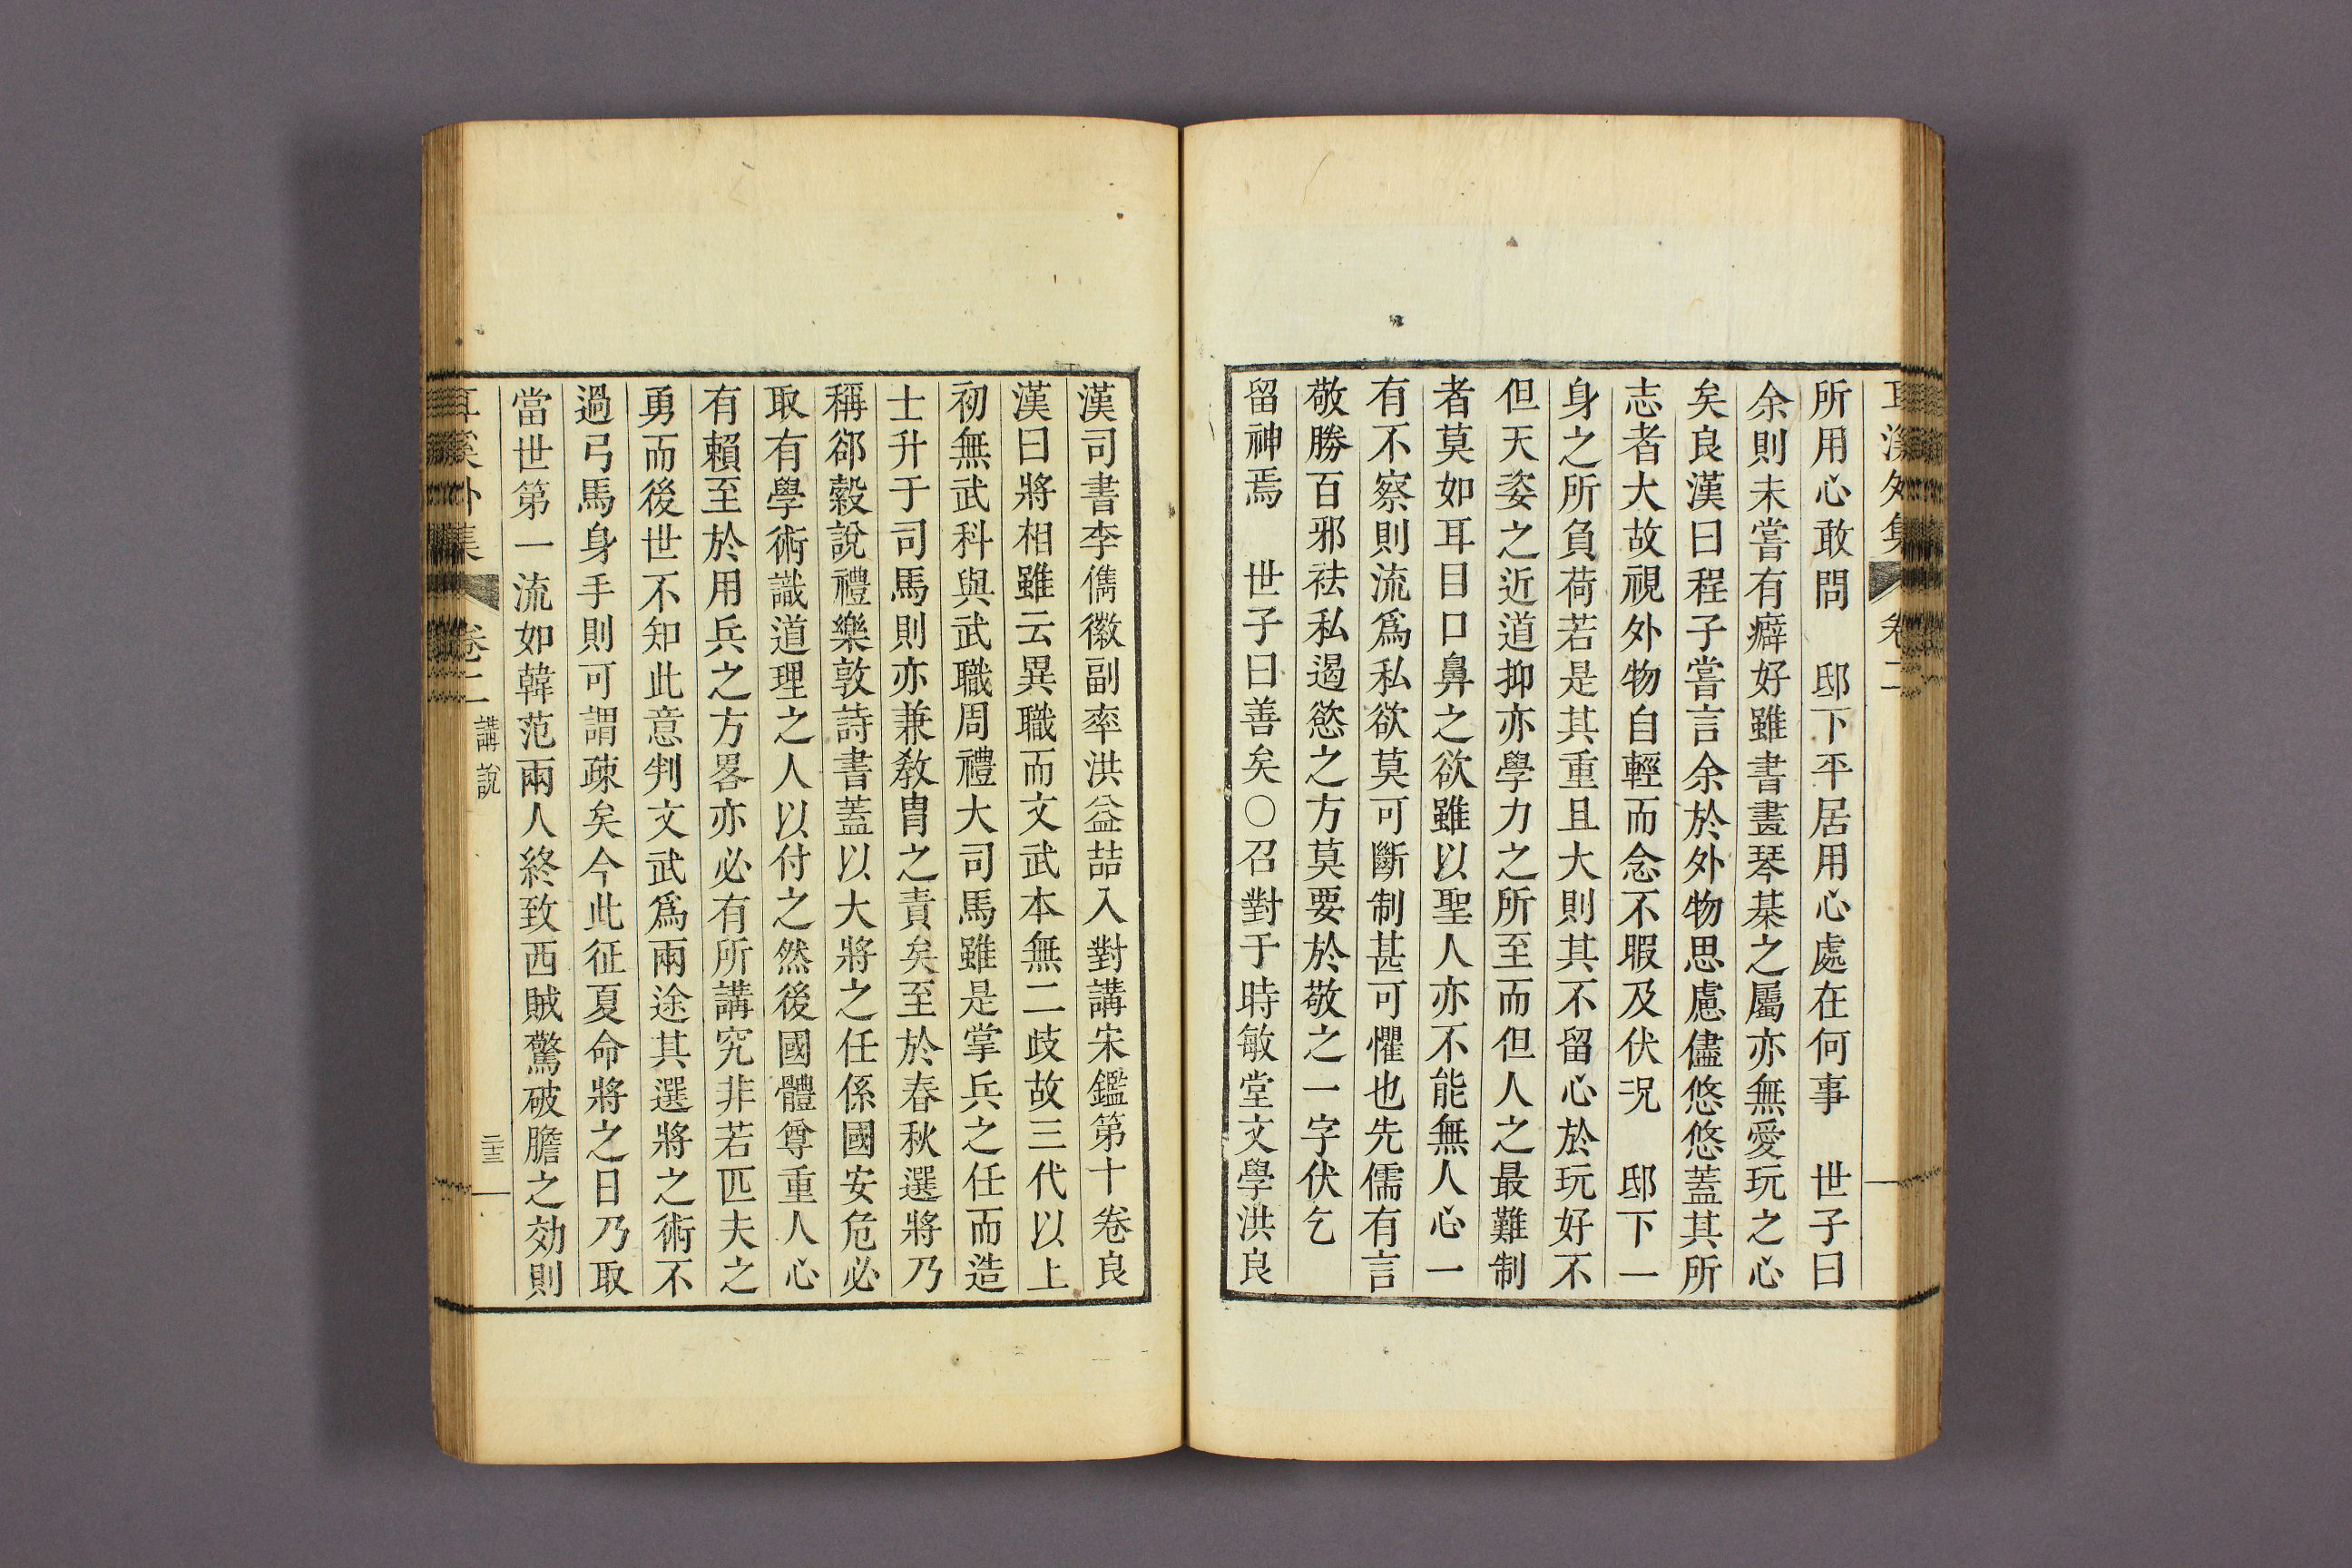 耳溪外集 卷二
所用心敢問 邸下平居用心處在何事 世子曰
余則未嘗有癖好雖書畫琴棊之屬亦無愛玩之心
矣良漢曰程子嘗言余於外物思慮儘悠悠蓋其所
志者大故視外物自輕而念不暇及伏况 邸下一
身之所負荷若是其重且大則其不留心於玩好不
但天姿之近道抑亦學力之所至而但人之最難制
者莫如耳目口鼻之欲雖以聖人亦不能無人心一
有不察則流爲私欲莫可斷制甚可懼也先儒有言
敬勝百邪祛私遏慾之方莫要於敬之一字伏乞
留神焉 世子曰善矣○召對于時敏堂文學洪良
漢司書李儁徽副率洪益喆入對講宋鑑第十卷良
漢曰將相雖云異職而文武本無二歧故三代以上
初無武科與武職周禮大司馬雖是掌兵之任而造
士升于司馬則亦兼敎胄之責矣至於春秋選將乃
稱郤縠說禮樂敦詩書蓋以大將之任係國安危必
取有學術識道理之人以付之然後國體尊重人心
有賴至於用兵之方畧亦必有所講究非若匹夫之
勇而後世不知此意判文武爲兩途其選將之術不
過弓馬身手則可謂疎矣今此征夏命將之日乃取
當世第一流如韓范兩人終致西賊驚破膽之効則
耳溪外集 卷二 講說 二十三